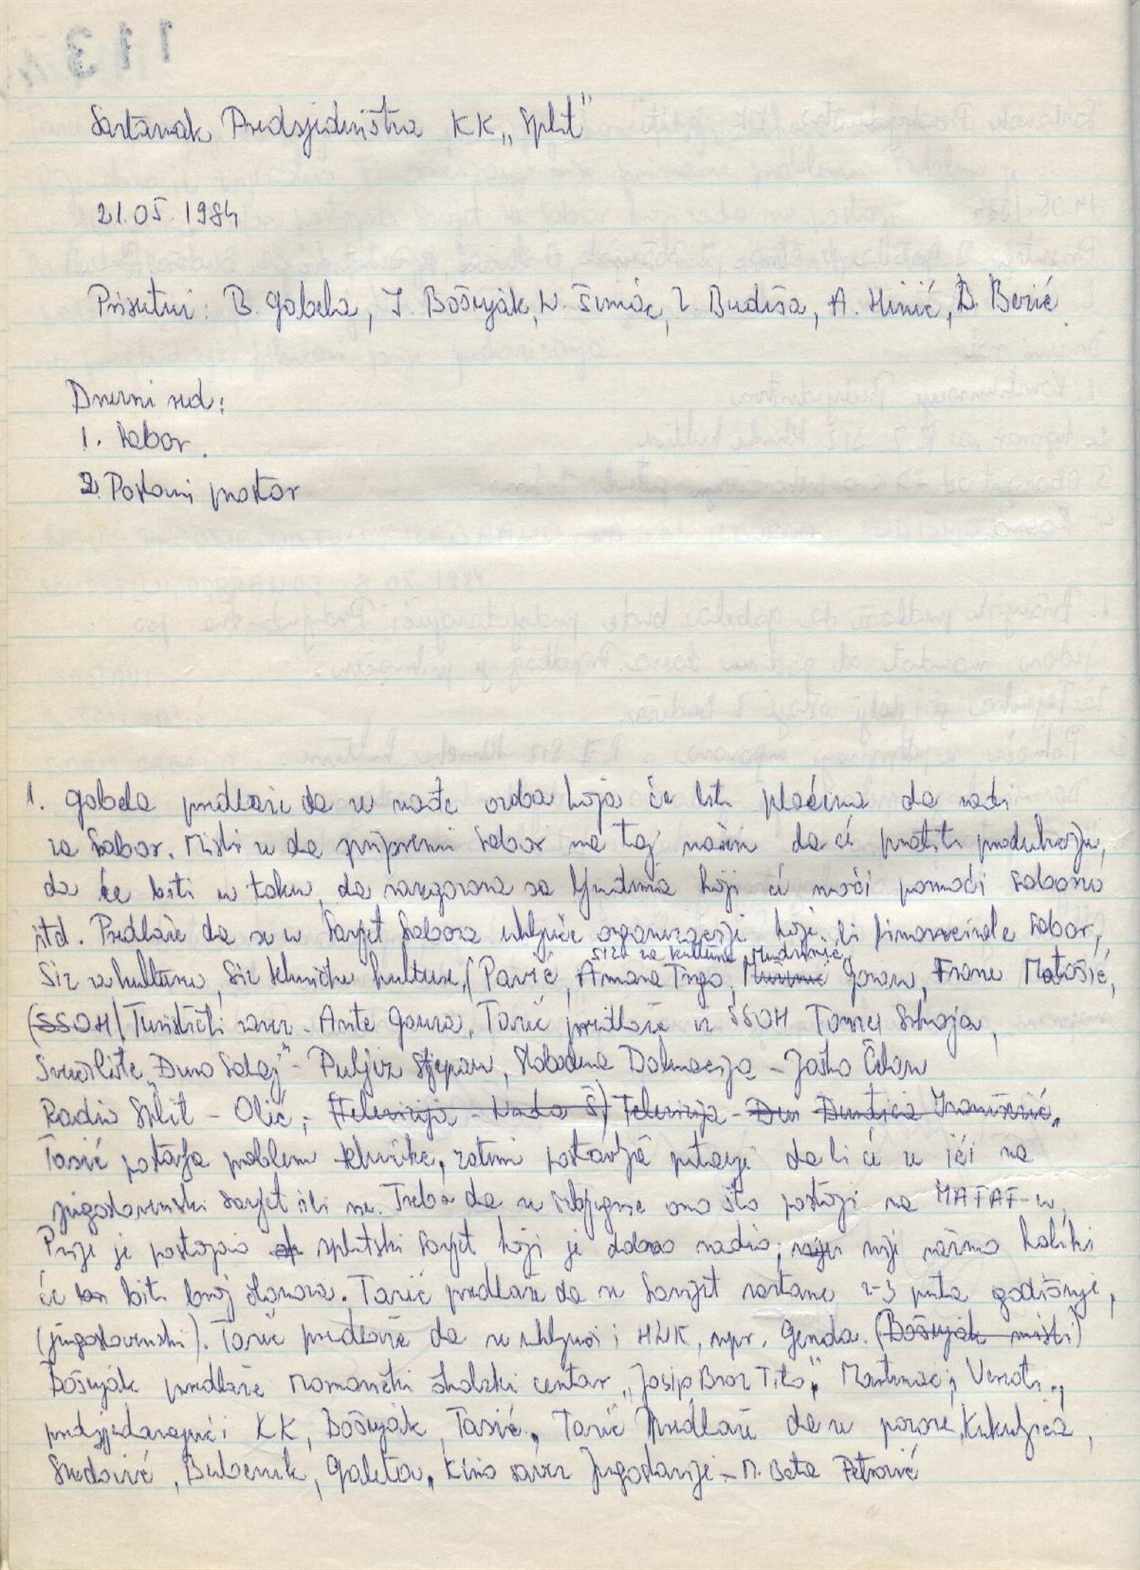 113
Sastanak Predsjedništva KK „Split"
21.05.1984
Prisutni: B. Gabela, I. Bošnjak, N. Šimac, Z. Budiša, A. Minić, B. Bezić.
Dnevni red:
1. Sabor.
2. Poslovni prostor
1. Gabela predlaže da se nađe osoba koja će biti plaćena da radi
za Sabor. Misli se da pripremi Sabor na taj način da će pratiti produkciju,
da će biti u toku, da razgovara sa ljudima koji će moći pomoći Saboru
itd. Predlaže da se u Savjet Sabora uključe organizacije koje bi finansirale Sabor,
Siz za kulturu, Siz tehničke kulture, (Pavić, Siz za kulturu Mudrinić, Goran, Frane Matošić,
(SSOH) Turistički savez - Ante Gavra, Tasić predlaže iz SSOH Tomu
Sveučilište „Đuro Salaj" - Puljiz Stjepan, Slobodna Dalmacija - Joško Čelan
Radio Split - Olić; (Televizija - Nada Š) Televizija - Dunatica Ivanišević.
Tasić postavlja problem tehnike, zatim postavlja pitanje da li će se ići na
jugoslovenski savjet ili ne. Treba da se izbjegne ono što postoji na MAFAF-u.
Prije je postojao splitski savjet koji je dobro radio; nije važno koliki
će biti broj članova. Tasić predlaže da se Savjet sastane 2-3 puta godišnje,
(jugoslovenski). Tasić predlaže da se uključi i HNK, npr. Genda. (Bošnjak misli)
Bošnjak predlaže Mornarički školski centar „Josip Broz Tito", Martinac, Verzotti,
predsjedavajući KK, Bošnjak, Tasić. Tasić predlaže da se pozove Kukuljica,
Buborenik, Galeta, Kino savez Jugoslavije - M. Bata Petrović